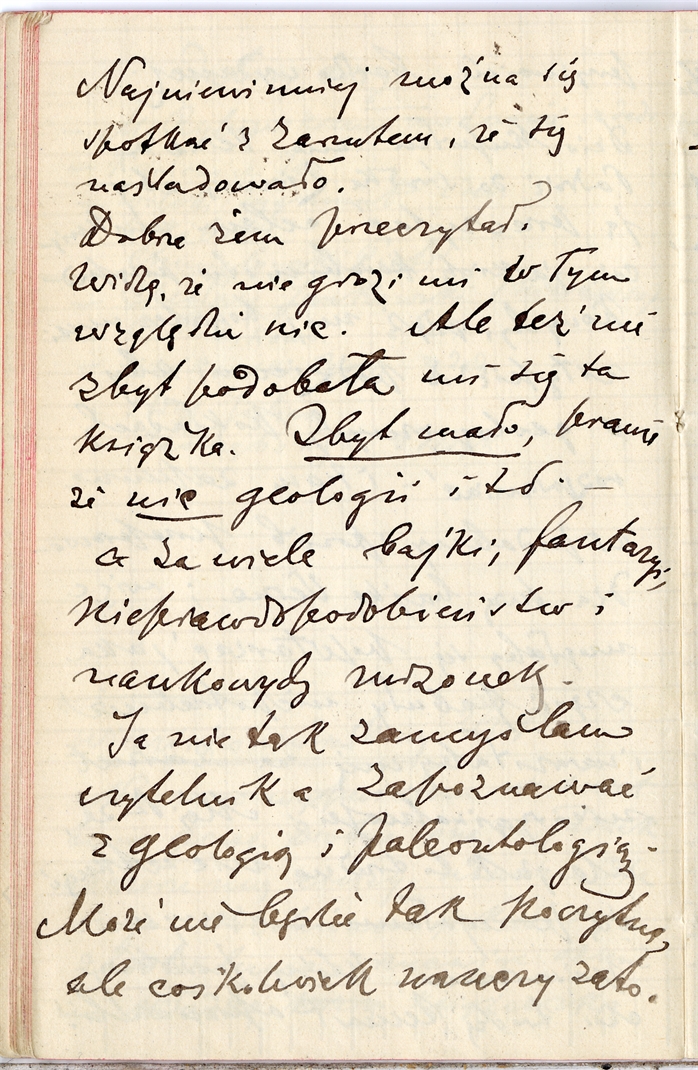 Najniewinniej można się
spotkać z zarzutem, że się
naśladowało.
Dobrze żem przeczytał.
Widzę, że nie grozi mi w tym
względzie nic. Ale też nie
zbyt podobała mi się ta
książka. Zbyt mało, prawie
że nic geologii i td. –
a za wiele bajki, fantazyi,
nieprawdopodobieństw i
naukowych mrzonek.
Ja nie tak zamyślam
czytelnika zapoznawać
z geologią i paleontologią.
Może nie będzie tak poczytne,
ale cośkolwiek nauczy zato.